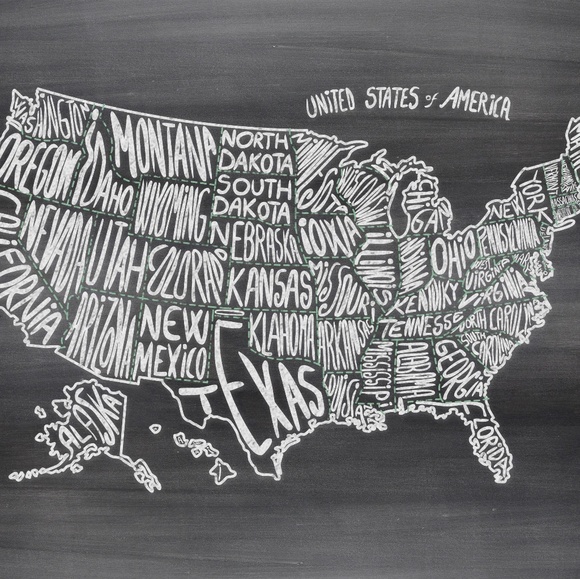 UNITED STATES of AMERICA
WASHINGTON
MONTANA
NORTH
DAKOTA
OREGON
IDAHO
WYOMING
SOUTH
DAKOTA
MICHIGAN
NEW
YORK
CALIFORNIA
NEVADA
UTAH
COLORADO
NEBRASKA
IOWA
ILLINOIS
OHIO
PENNSYLVANIA
KANSAS
MISSOURI
KENTUCKY
WEST
VIRGINIA
VIRGINIA
ARIZONA
NEW
MEXICO
OKLAHOMA
ARKANSAS
TENNESSEE
NORTH CAROLINA
SOUTH
CAROLINA
TEXAS
LOUISIANA
MISSISSIPPI
ALABAMA
GEORGIA
FLORIDA
ALASKA